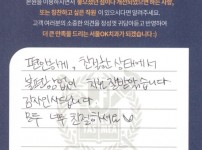 본원을 이용하시면서 좋으셨던 점이나 개선되었으면 하는 사항,
또는 칭찬하고 싶은 직원 이 있으시다면 알려주세요.
고객 여러분의 소중한 의견을 참정 귀담아듣고 반영하여
더 큰 만족을 드리는 서울OK치과가 되겠습니다 :)
편안하게, 친절한 상태에서
불편함 없이 치료 잘 받았습니다
감사인사드립니다
모두 너무 친절하세요